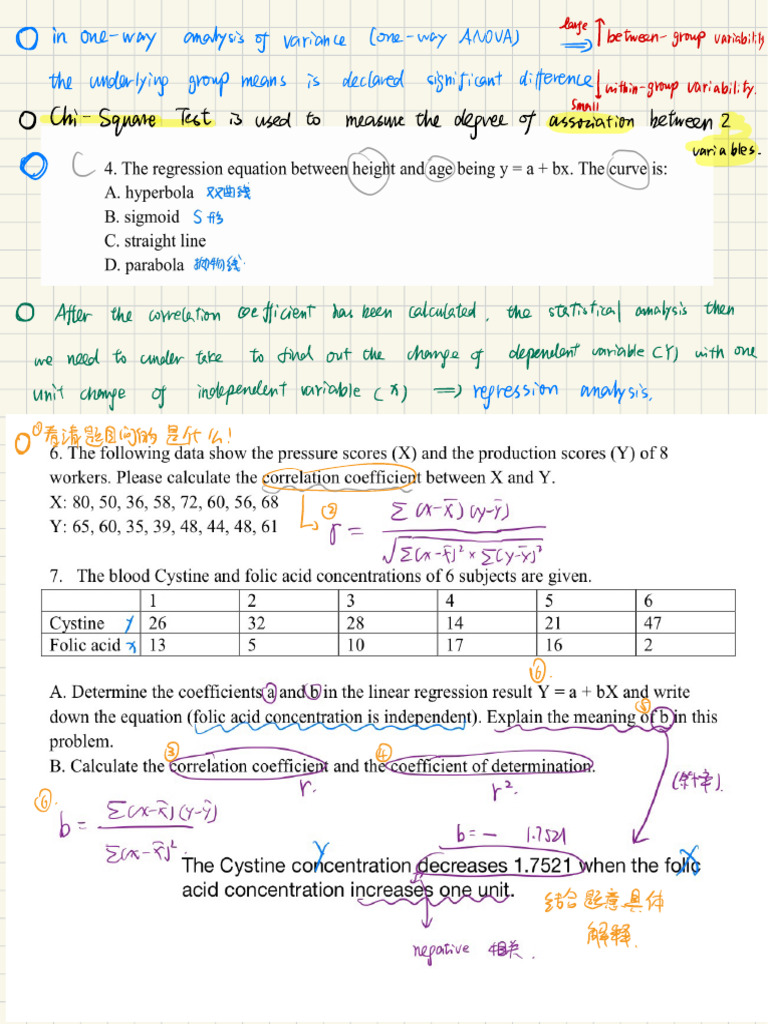 in one-way analysis of variance (one-way ANOVA) large between-group variability
the underlying group means is declared significant difference within-group variability.
small
Chi-Square Test is used to measure the degree of association between 2
variables.
C 4. The regression equation between height and age being y = a + bx. The curve is:
A. hyperbola 双曲线
B. sigmoid S形
C. straight line
D. parabola 抛物线
After the correlation coefficient has been calculated, the statistical analysis then
we need to under take to find out the change of dependent variable (Y) with one
unit change of independent variable (x) ⇒ regression analysis.
① 看清题目问的是什么!
6. The following data show the pressure scores (X) and the production scores (Y) of 8
workers. Please calculate the correlation coefficient between X and Y.
X: 80, 50, 36, 58, 72, 60, 56, 68 ②
Y: 65, 60, 35, 39, 48, 44, 48, 61 r = Σ(x-x̄)(y-ȳ) / √Σ(x-x̄)² × Σ(y-ȳ)²
7. The blood Cystine and folic acid concentrations of 6 subjects are given.
1 2 3 4 5 6
Cystine y 26 32 28 14 21 47
Folic acid x 13 5 10 17 16 2
⑥
A. Determine the coefficients a and b in the linear regression result Y = a + bX and write
⑤
down the equation (folic acid concentration is independent). Explain the meaning of b in this
problem. ③ ④
B. Calculate the correlation coefficient and the coefficient of determination.
r. r². (斜率).
⑥ b = Σ(x-x̄)(y-ȳ) / Σ(x-x̄)².
b = - 1.7521
Y X
The Cystine concentration decreases 1.7521 when the folic
acid concentration increases one unit.
结合题意具体
解释.
negative 相关.